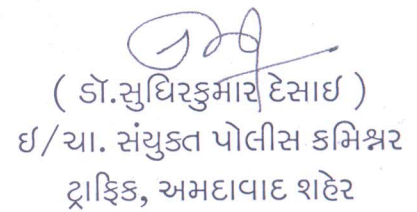 ( ડૉ.સુધિરકુમાર દેસાઇ )
ઇ/ચા. સંયુક્ત પોલીસ કમિશ્નર
ટ્રાફિક, અમદાવાદ શહેર